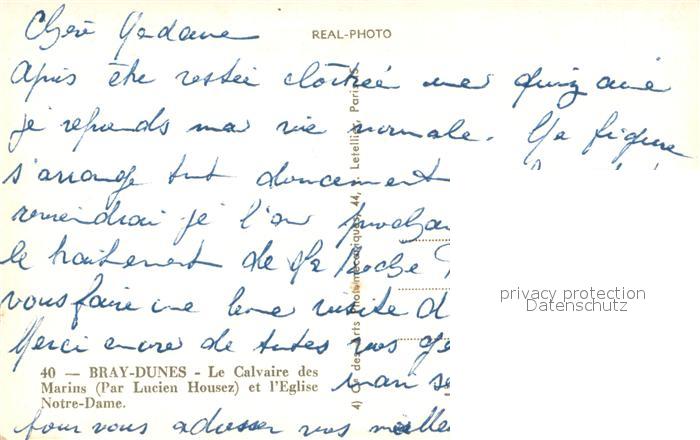 Chère Madame
REAL-PHOTO
Après être restée cloîtrée une quinzaine
je reprends ma vie normale. Ma figure
s'arrange tout doucement
reviendrai je l'an prochain
le traitement de La Roche
vous faire une bonne visite d
Merci encore de toutes vos ge
40 — BRAY-DUNES - Le Calvaire des
Marins (Par Lucien Housez) et l'Eglise
Notre-Dame.
mari se
pour vous adresser nos meille
4) Cie des Arts Photomécaniques, 44, Letellier, Paris-15
privacy protection
Datenschutz